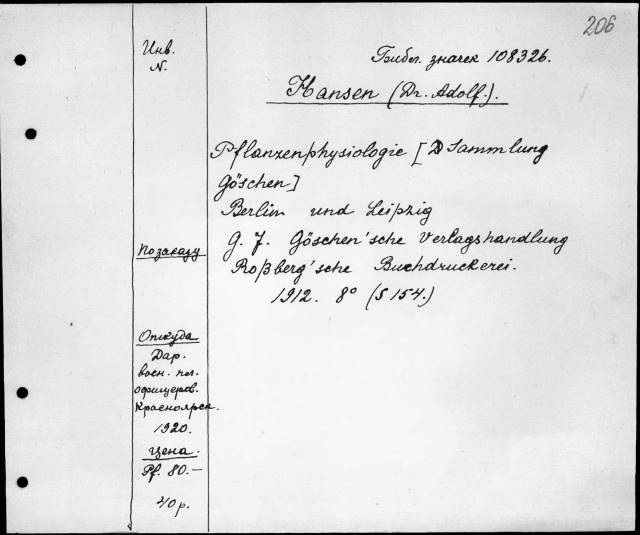 206
Инв.
N.
Библ. значек 108326.
Hansen (Dr. Adolf.).
Pflanzenphysiologie [Sammlung
Göschen]
Berlin und Leipzig
G. J. Göschen'sche Verlagshandlung
Roßberg'sche Buchdruckerei.
1912. 8° (S 154.)
По заказу
Откуда
Дар.
воен. пл.
офицеров.
Красноярск.
1920.
Цена.
Pf. 80.—
40 р.